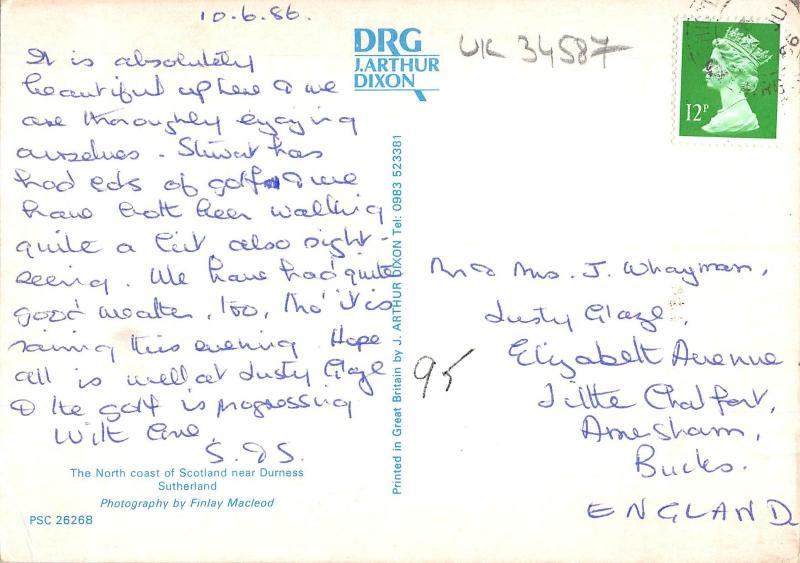 10.6.86.
It is absolutely
beautiful up here & we
are thoroughly enjoying
ourselves. Stuart has
had lots of golf & we
have both been walking
quite a bit, also sight-
seeing. We have had quite
good weather, too, tho' it is
raining this evening. Hope
all is well at Dusty Glaze
& the golf is progressing
With love,
S. & S.
The North coast of Scotland near Durness
Sutherland
Photography by Finlay Macleod
PSC 26268
DRG
J. ARTHUR
DIXON
Printed in Great Britain by J. ARTHUR DIXON Tel: 0983 523381
UK 34587
95
12P
Mr & Mrs. J. Whayman,
Dusty Glaze,
Elizabeth Avenue
Little Chalfont,
Amersham,
Bucks.
ENGLAND